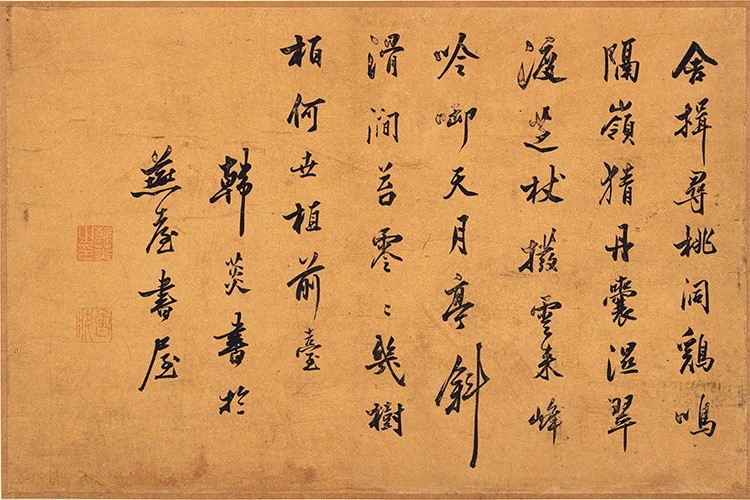 舍揖尋桃洞鷄鳴
隔嶺猜丹囊湿翠
渡芝杖撥雲来峰
吟啣天月亭斜
滑澗苔零々幾樹
栢何世植前臺
韓菼書於
燕臺書屋